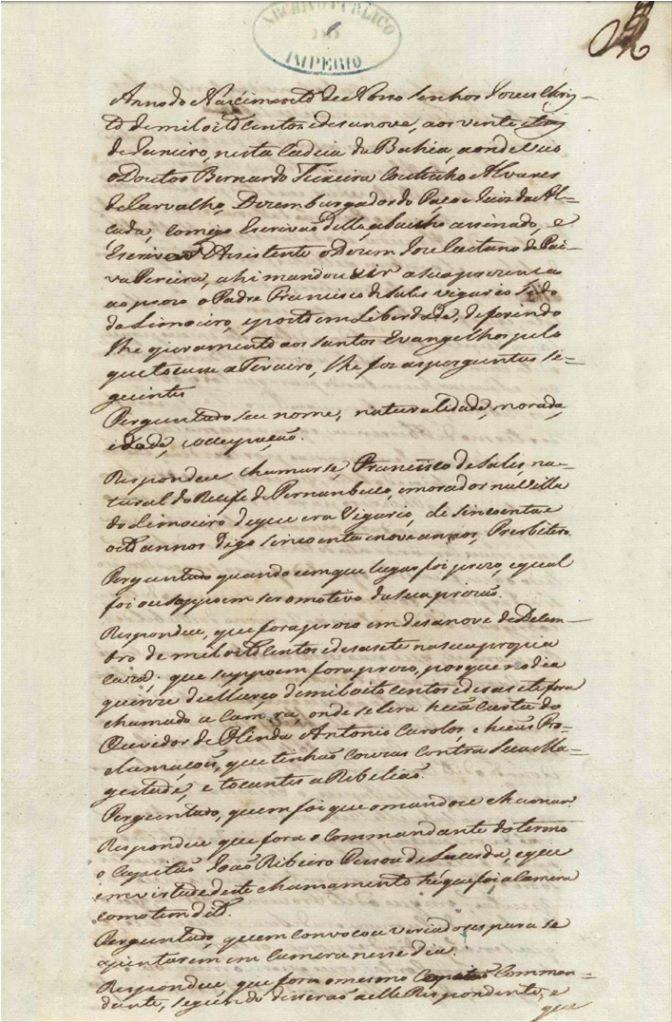 ARCHIVO PUBLICO
DO
IMPERIO
Anno do Nascimento de Nosso Senhor Jezus Chris-
to de mil oito centos e desanove, aos vinte
de Janeiro, nesta Cadeia da Bahia, aonde veio
o Doutor Bernardo Teixeira Coutinho Alvares
de Carvalho, Dezembargador do Paço e Juis da Al-
çada, comigo Escrivão della abaicho assinado, e
Escrivão Assistente o Dezem. Joze Caetano de Pai-
va Pereira, ahi mandou vir a sua prezença
ao prezo o Padre Francisco de Sales vigario
do Limoeiro, e posto em Liberdade, deferindo
lhe o juramento aos Santos Evangelhos pelo
que tocasse a Terceiro, lhe fez as perguntas se-
guintes
Perguntado seu nome, naturalidade, morada,
idade, occupação.
Respondeu chamarse, Francisco de Sales, na-
tural do Recife de Pernambuco, e morador na Villa
do Limoeiro de que era Vigario, de sincoenta e
oito annos digo sincoenta e nove annos, Presbitero.
Perguntado quando e em que lugar foi prezo, e qual
foi ou suppoem ser o motivo da sua prizão.
Respondeu, que fora prezo em desanove de Dezem-
bro de mil oito centos e desasete na sua propria
caza: que suppoem fora prezo, porque no dia
quinze de Março de mil oito centos e desasete fora
chamado a Camara, onde se lera huã Carta do
Ouvidor de Olinda Antonio Carolos, e huãs Pro-
clamaçoes, que tinhão couzas contra Sua Ma-
gestade, e tocantes a Rebelião.
Perguntado, quem foi que o mandou chamar?
Respondeu que fora o Commandante do termo
o Capitão João Ribeiro Pessoa de Lacerda, e que
em virtude deste chamamento hé que foi a Camera
como tem dito.
Perguntado, quem convocou a veriadores para se
ajuntarem em Camera nesse dia.
Respondeu, que fora o mesmo Comman-
dante, segundo disserão a elle Respondente, e
que